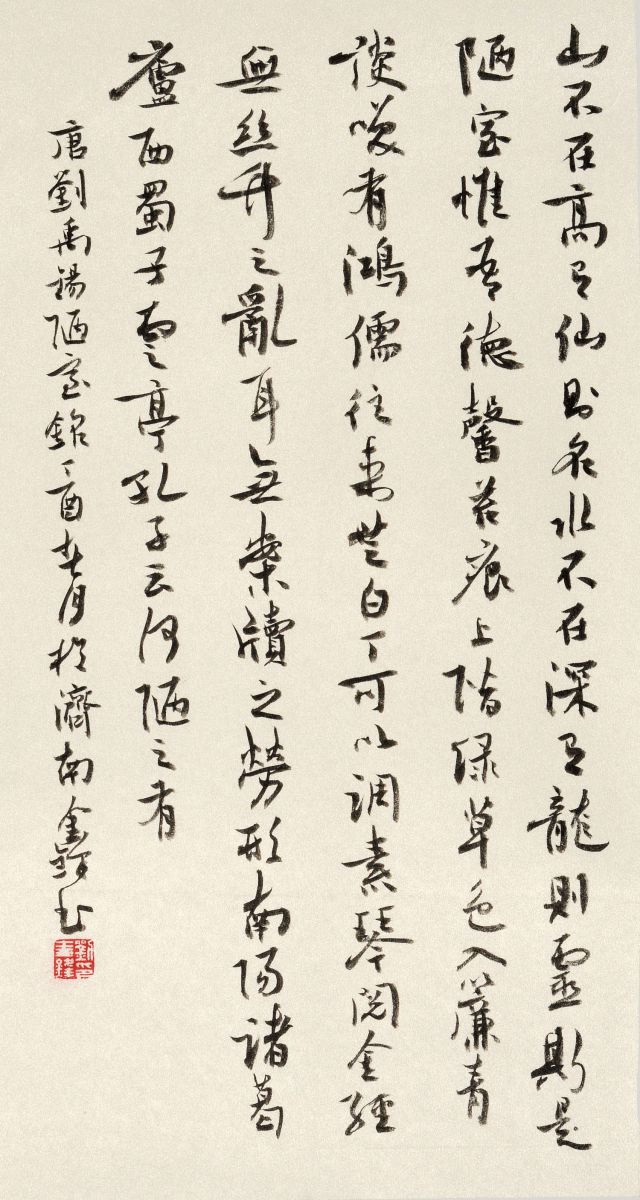 山不在高有仙則名水不在深有龍則靈斯是
陋室惟吾德馨苔痕上階緑草色入簾青
談笑有鴻儒往來無白丁可以調素琴閱金經
無絲竹之亂耳無案牘之勞形南陽諸葛
廬西蜀子雲亭孔子云何陋之有
唐劉禹錫陋室銘丁酉春月於濟南書